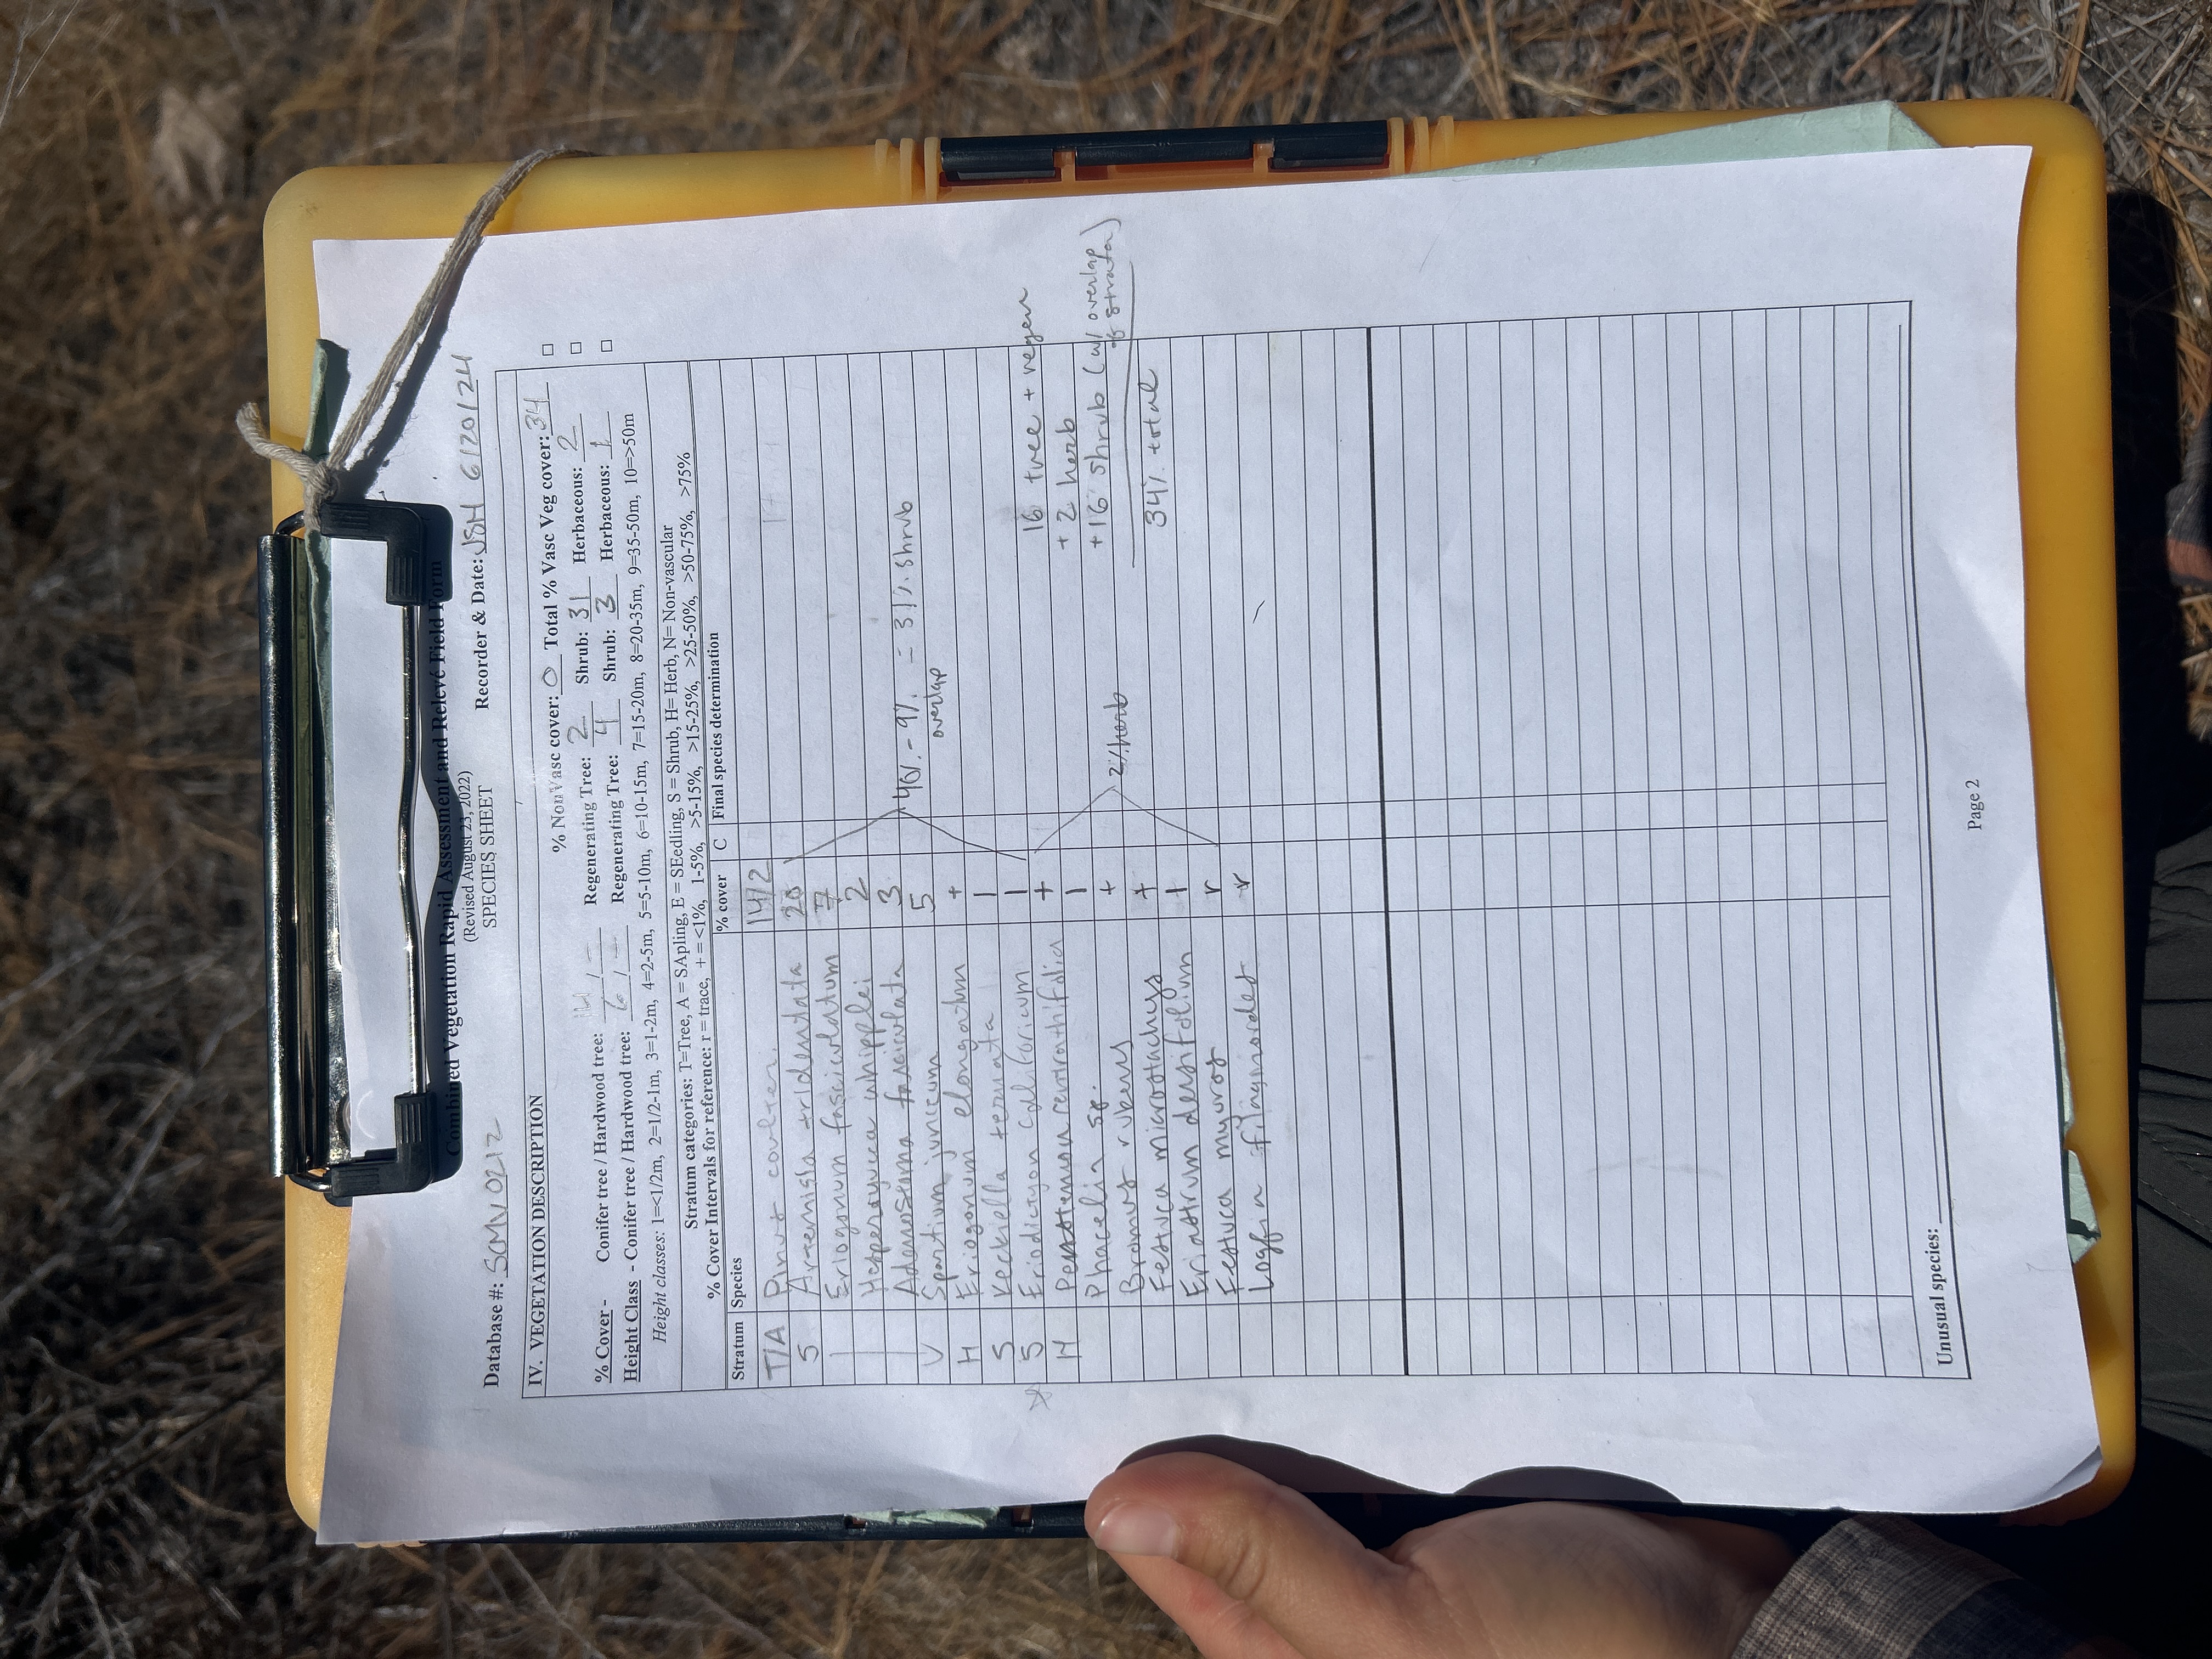 Combined Vegetation Rapid Assessment and Relevé Field Form
(Revised August 23, 2022)
SPECIES SHEET
Database #: SCMV0212 Recorder & Date: JSH 6/20/24
IV. VEGETATION DESCRIPTION
% NonVasc cover: 0 Total % Vasc Veg cover: 34
% Cover - Conifer tree / Hardwood tree: 14 / - Regenerating Tree: 2 Shrub: 31 Herbaceous: 2
Height Class - Conifer tree / Hardwood tree: 6 / - Regenerating Tree: 4 Shrub: 3 Herbaceous: 1
Height classes: 1=<1/2m, 2=1/2-1m, 3=1-2m, 4=2-5m, 5=5-10m, 6=10-15m, 7=15-20m, 8=20-35m, 9=35-50m, 10=>50m
Stratum categories: T=Tree, A = SApling, E = SEedling, S = Shrub, H= Herb, N= Non-vascular
% Cover Intervals for reference: r = trace, + = <1%, 1-5%, >5-15%, >15-25%, >25-50%, >50-75%, >75%
Stratum Species % cover C Final species determination
T/A Pinus coulteri 14/2
S Artemisia tridentata 20
Eriogonum fasciculatum 7
Hesperoyucca whipplei 2
Adenostoma fasciculata 3
Spartium junceum 5
40% - 9% = 31% shrub
overlap
H Eriogonum elongatum +
S Keckiella ternata 1
S Eriodictyon californicum 1
H Penstemon centranthifolia +
Phacelia sp. 1
Bromus rubens +
Festuca microstachys +
Eriastrum densifolium +
Festuca myuros r
Logfia filaginoides r
2% herb
16 tree + regen
+ 2 herb
+ 16 shrub (w/ overlap
of strata)
34% total
Unusual species:
Page 2